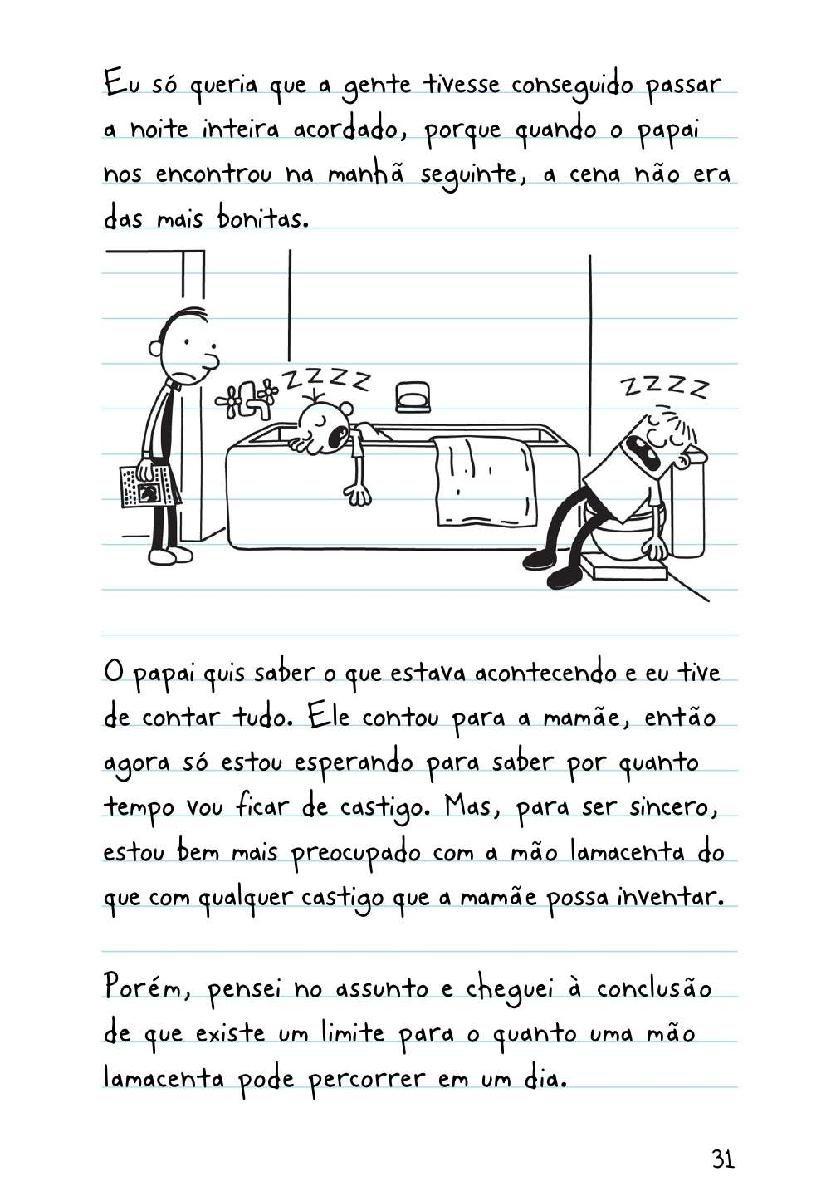 Eu só queria que a gente tivesse conseguido passar
a noite inteira acordado, porque quando o papai
nos encontrou na manhã seguinte, a cena não era
das mais bonitas.
ZZZZ
ZZZZ
O papai quis saber o que estava acontecendo e eu tive
de contar tudo. Ele contou para a mamãe, então
agora só estou esperando para saber por quanto
tempo vou ficar de castigo. Mas, para ser sincero,
estou bem mais preocupado com a mão lamacenta do
que com qualquer castigo que a mamãe possa inventar.
Porém, pensei no assunto e cheguei à conclusão
de que existe um limite para o quanto uma mão
lamacenta pode percorrer em um dia.
31